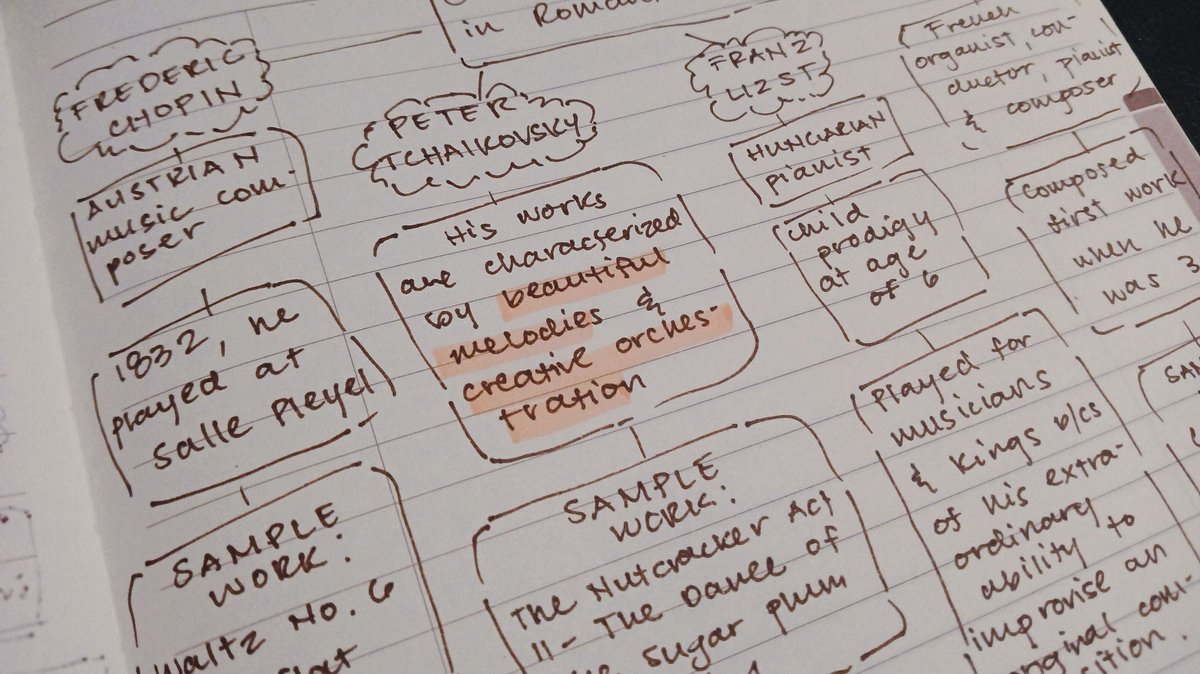 in Roman
FREDERIC
CHOPIN
AUSTRIAN
music com-
poser
1832, he
played at
Salle Pleyel
SAMPLE
WORK:
Waltz No. 6
PETER
TCHAIKOVSKY
His works
are characterized
by beautiful
melodies &
creative orches-
tration
SAMPLE
WORK:
The Nutcracker Act
II - The Dance of
Sugar plum
FRANZ
LIZST
HUNGARIAN
pianist
child
prodigy
at age
of 6
Played for
musicians
& Kings b/cs
of his extra-
ordinary
ability to
improvise an
original comp-
sition.
French
organist, con-
ductor, pianist
& composer
composed
first work
when he
was 3